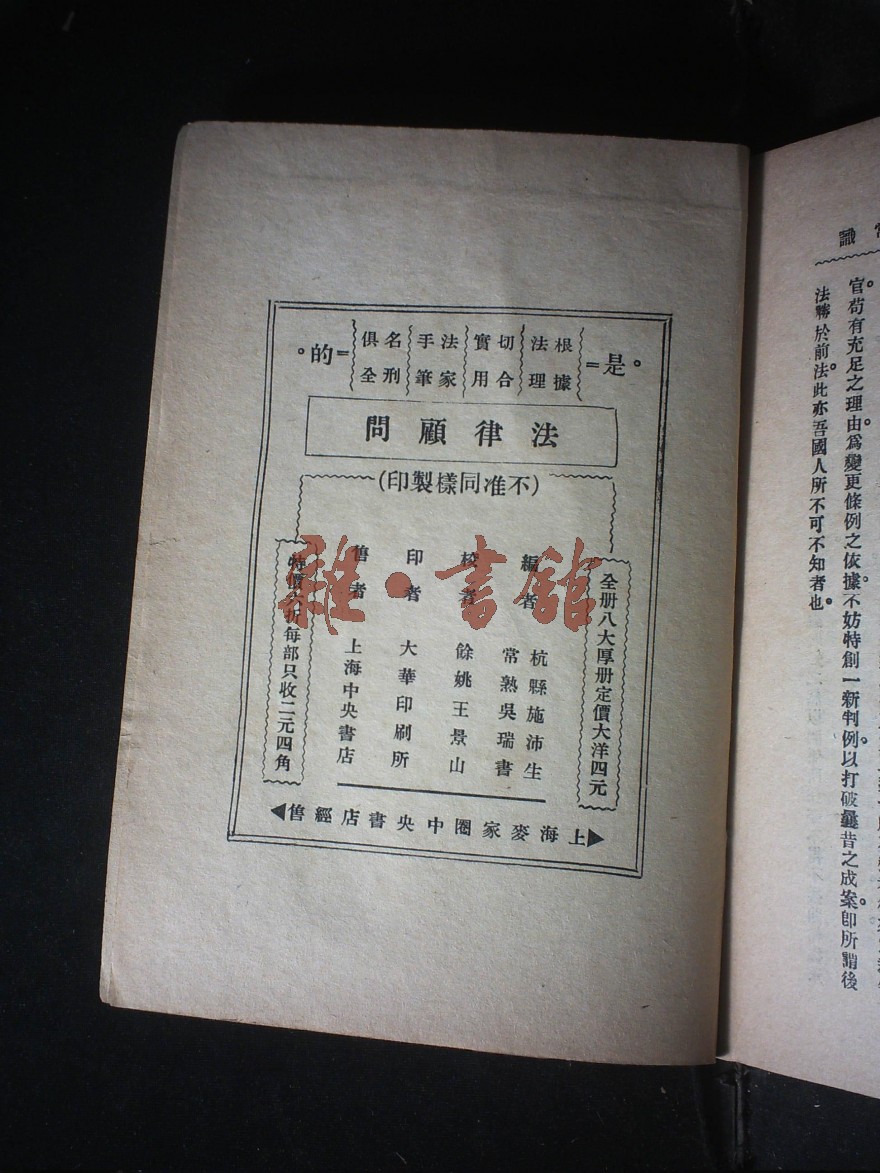 識
官苟有充足之理由。爲變更條例之依據。不妨特創一新判例。以打破曩昔之成案。卽所謂後
法勝於前法。此亦吾國人所不可不知者也。
。是=
根據法理
切合實用
法家手筆
名刑俱全
=的。
法律顧問
(不准同樣製印)
全册八大厚册定價大洋四元
編者 杭縣施沛生
常熟吳瑞書
校者 餘姚王景山
印者 大華印刷所
售者 上海中央書店
特價六折每部只收二元四角
上海麥家圈中央書店經售
雜·書館